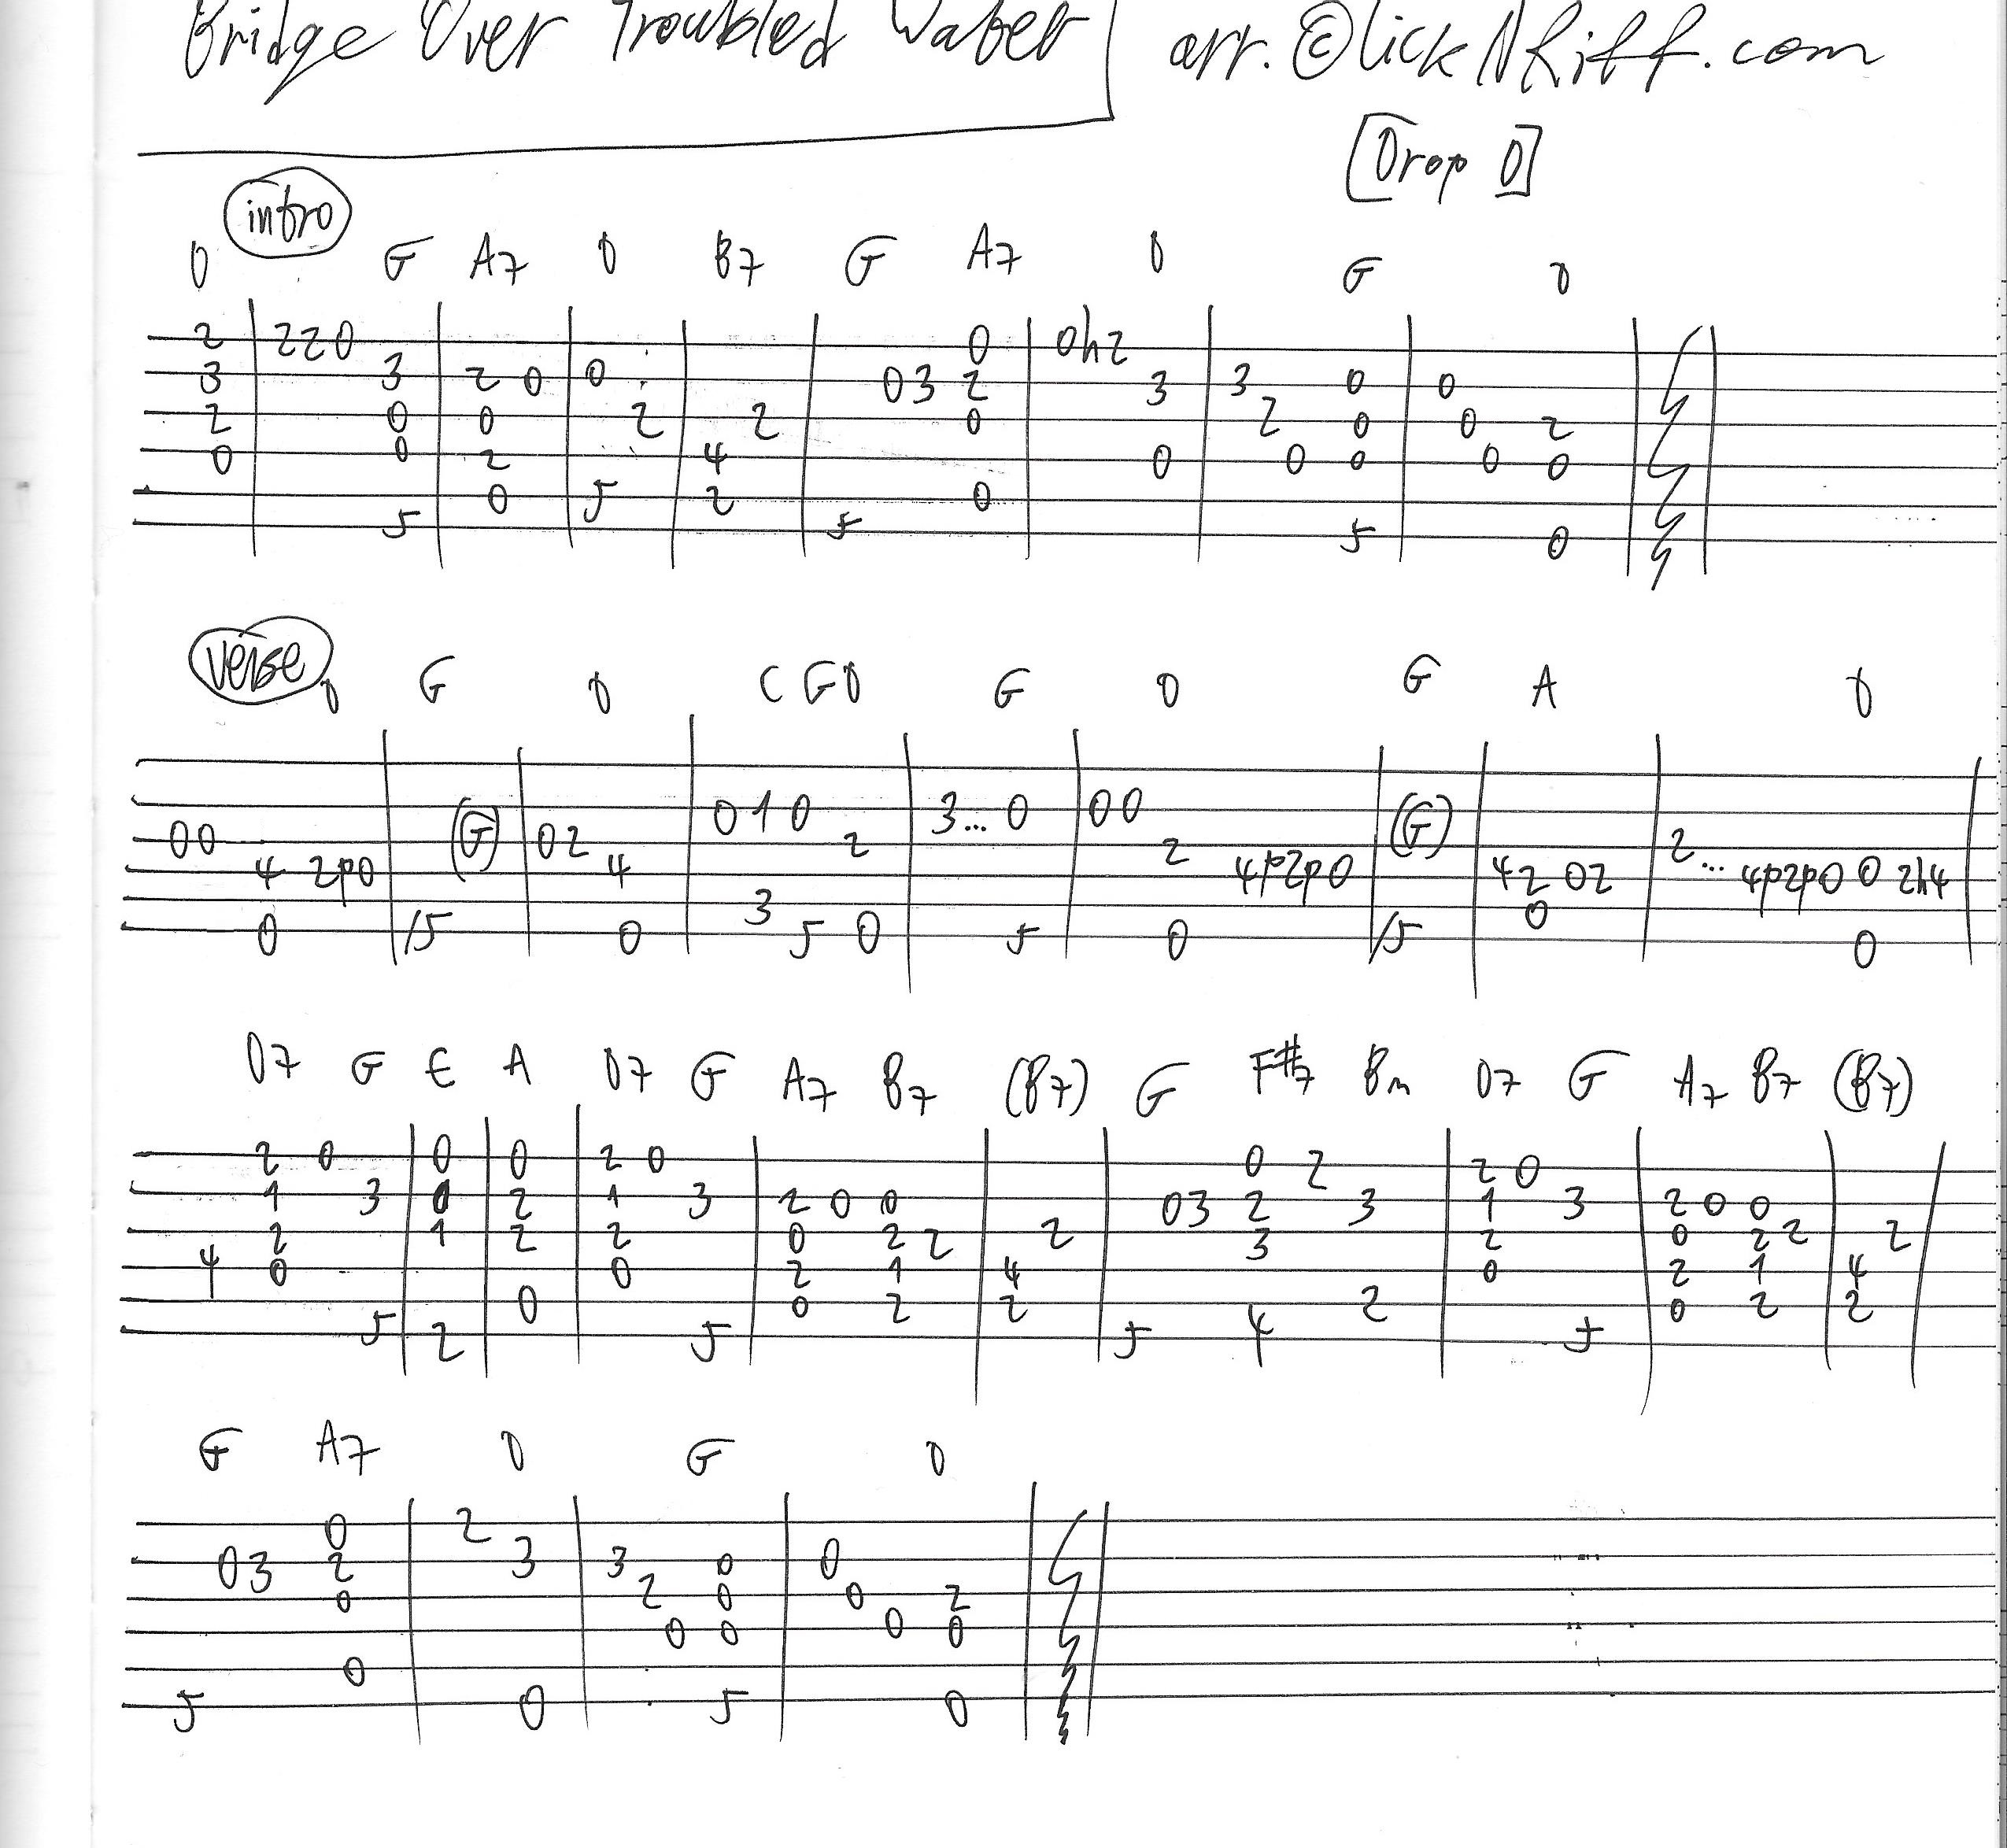 Bridge Over Troubled Water arr. ©LickNRiff.com
[Drop D]
intro
D G A7 D B7 G A7 D G D
2 220 0 0h2
3 3 2 0 0 03 2 3 3 0 0
2 0 0 2 2 0 2 0 0 2
0 0 2 4 0 0 0 0 0
0 5 2 0
5 5 5 0
verse
D G D C G D G D G A D
(G) 0 1 0 3... 0 00 (G)
00 02 2 2 2...
4 2p0 4 4p2p0 42 02 4p2p0 0 2h4
3 0
0 /5 0 5 0 5 0 /5 0
D7 G E A D7 G A7 B7 (B7) G F#7 Bm D7 G A7 B7 (B7)
2 0 0 0 2 0 0 2 2 0
1 3 0 2 1 3 2 0 0 03 2 3 1 3 2 0 0
2 1 2 2 0 2 2 2 3 2 0 2 2 2
4 0 0 2 1 4 0 2 1 4
0 0 2 2 2 0 2 2
5 2 5 5 4 5
G A7 D G D
0 2
03 2 3 3 0 0
0 2 0 0 2
0 0 0 0
0
5 0 5 0